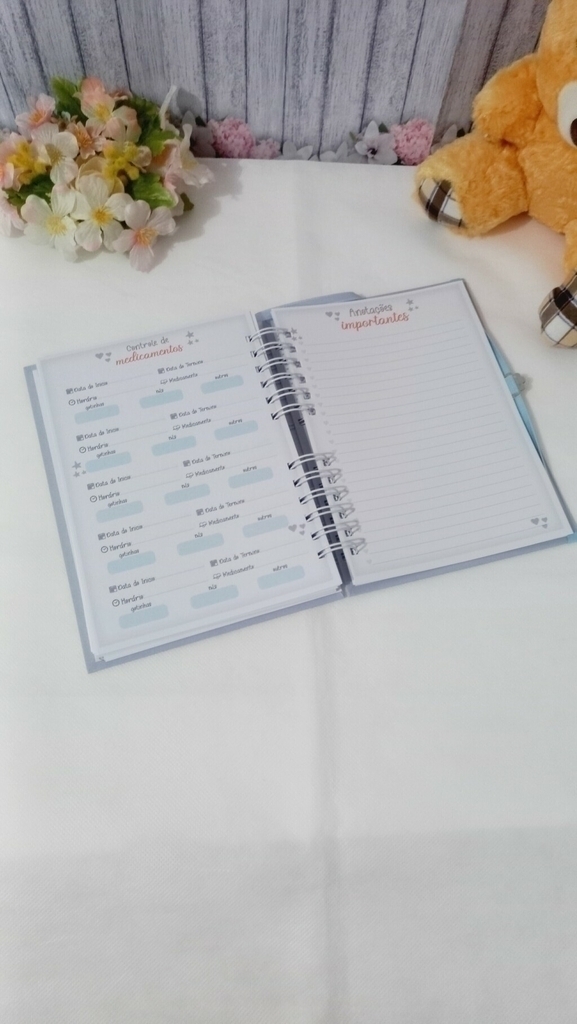 Controle de
medicamentos
Data de Início Data de Término
Horário Medicamento
gotinhas ml's outros
Data de Início Data de Término
Horário Medicamento
gotinhas ml's outros
Data de Início Data de Término
Horário Medicamento
gotinhas ml's outros
Data de Início Data de Término
Horário Medicamento
gotinhas ml's outros
Data de Início Data de Término
Horário Medicamento
gotinhas ml's outros
Anotações
importantes